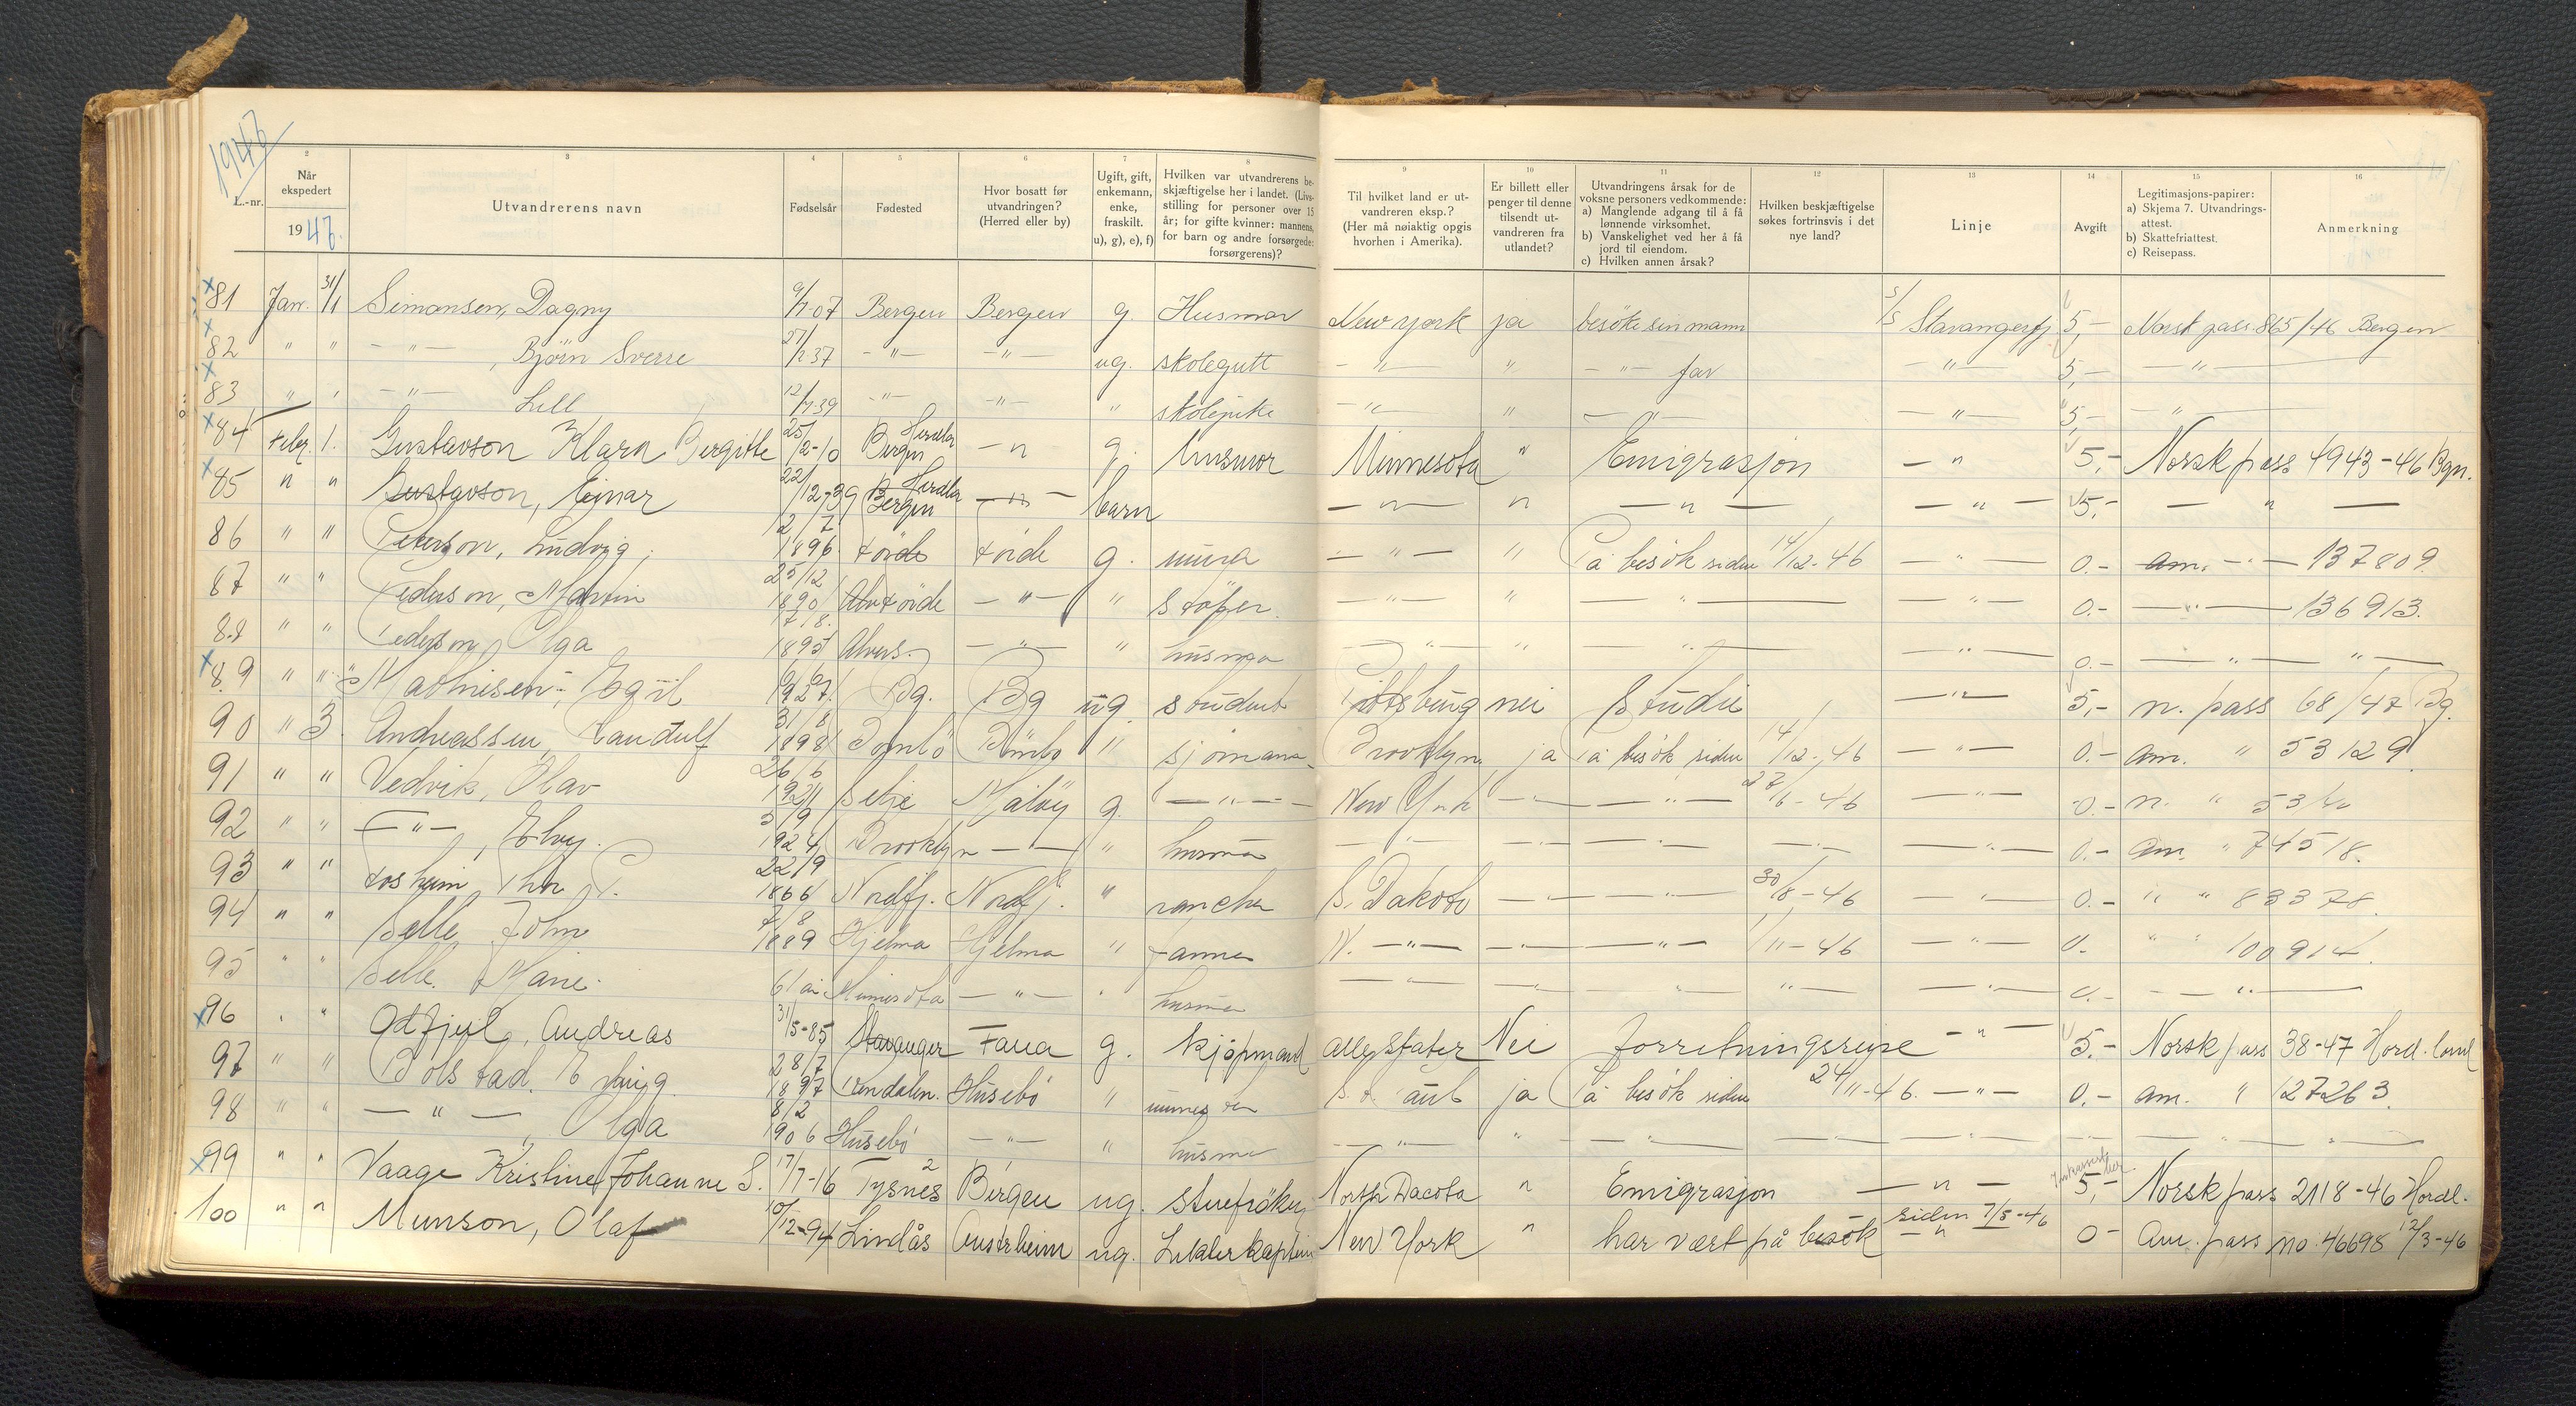 1947
L.-nr.
2 Når ekspedert 1947.
3 Utvandrerens navn
4 Fødselsår
5 Fødested
6 Hvor bosatt før utvandringen? (Herred eller by)
7 Ugift, gift, enkemann, enke, fraskilt. u), g), e), f)
8 Hvilken var utvandrerens beskjæftigelse her i landet. (Livsstilling for personer over 15 år; for gifte kvinner: mannens, for barn og andre forsørgede: forsørgerens)?
9 Til hvilket land er utvandreren eksp.? (Her må nøiaktig opgis hvorhen i Amerika).
10 Er billett eller penger til denne tilsendt utvandreren fra utlandet?
11 Utvandringens årsak for de voksne personers vedkommende: a) Manglende adgang til å få lønnende virksomhet. b) Vanskelighet ved her å få jord til eiendom. c) Hvilken annen årsak?
12 Hvilken beskjæftigelse søkes fortrinsvis i det nye land?
13 Linje
14 Avgift
15 Legitimasjons-papirer: a) Skjema 7. Utvandringsattest. b) Skattefriattest. c) Reisepass.
16 Anmerkning
x 81 Jan. 31/1 Simonsen, Dagny 9/7 07 Bergen Bergen g. Husmor New York ja besøke sin mann S/S Stavangerfj 5,- Norsk pass 865/46 Bergen
x 82 " " - " - , Bjørn Sverre 27/ 37 - " - - " - ug. skolegutt - " - " - " - far - " - 5,- - " -
x 83 " " - " - Lill 12/7 39 - " - - " - " skolepike - " - " - " - - " - 5,- - " -
x 84 Febr. 1. Gustavson Klara Bergitte 25/2-10 Bergen Herdla - " g. husmor Minnesota " Emigrasjon - " 5,- Norsk pass 4943-46 Bgn.
x 85 " " Gustavson, Einar 22/12-39 Bergen Herdla - " - barn - " - " - " - - " - 5,- - " -
86 " " Peterson, Ludvig, 12/7 1896 Førde Førde g. - " - " På besøk siden 14/12-46 - " - 0.- am. - " - 137809
87 " " Pederson, Martin 25/12 1890 Førde - " - " - " - " - " - - " - 0.- - " - 136913.
88 " " Pederson, Olga 17/8. 1895 - " - " husmor - " - " - " - - " - 0.- - " - " -
x 89 " " Mathisen, Egil 6/6 1927. Bg. Bg ug. student Pittsburg nei Studie - " - 5,- n. pass 68/47 Bg.
90 " 3. Andreassen, Randulf 31/8 1898 Bømlo Bømlo " sjømann Brooklyn ja På besøk siden 14/12-46 - " - 0.- am. " 53129
91 " " Vedvik, Olav 26/6 1921 Selje Måløy g. - " - New York - " - - " - /6-46 - " - 0.- n. "
92 " " - " - , 3/9 1924 Brooklyn - " - " husmor - " - - " - - " - - " - 0.- am. " 74518.
93 " " 22/9 1866 Nordfj. Nordfj. " rancher S. Dakota - " - - " - 30/8-46 - " - 0.- " " 83378.
94 " " Selle John 4/8 1889 Hjelma Hjelma " farmer N. - " - - " - - " - 1/11-46 - " - 0.- " " 100914.
95 " " Selle, Marie. 61 år Minnesota - " - " husmor - " - - " - " - " - - " - 0.- - " -
x 96 " " Odfjell, Andreas 31/5-85 Stavanger Fana g. kjøpmand alle stater Nei forretningsreise - " - 5.- Norsk pass 38-47 Hord.land
97 " " Bolstad, 28/7 1897 Husebø " ja På besøk siden 24/11-46. - " - 0,- am. " 127263.
98 " " - " - , Olga 8/2 1906 Husebø - " - " husmor - " - " - " - - " - - " - - " -
x 99 " " Vaage Kristine Johanne S. 17/7-16 Tysnes Bergen ug. stuefrøken North Dacota " Emigrasjon - " - 5,- Norsk pass 2118-46 Hordl.
100 " " Munson, Olaf 10/12-94 Lindås Austrheim ug. Lekterkaptein New York " har vært på besøk siden 7/5-46 - " 0- Am. pass no. 46698 12/3-46